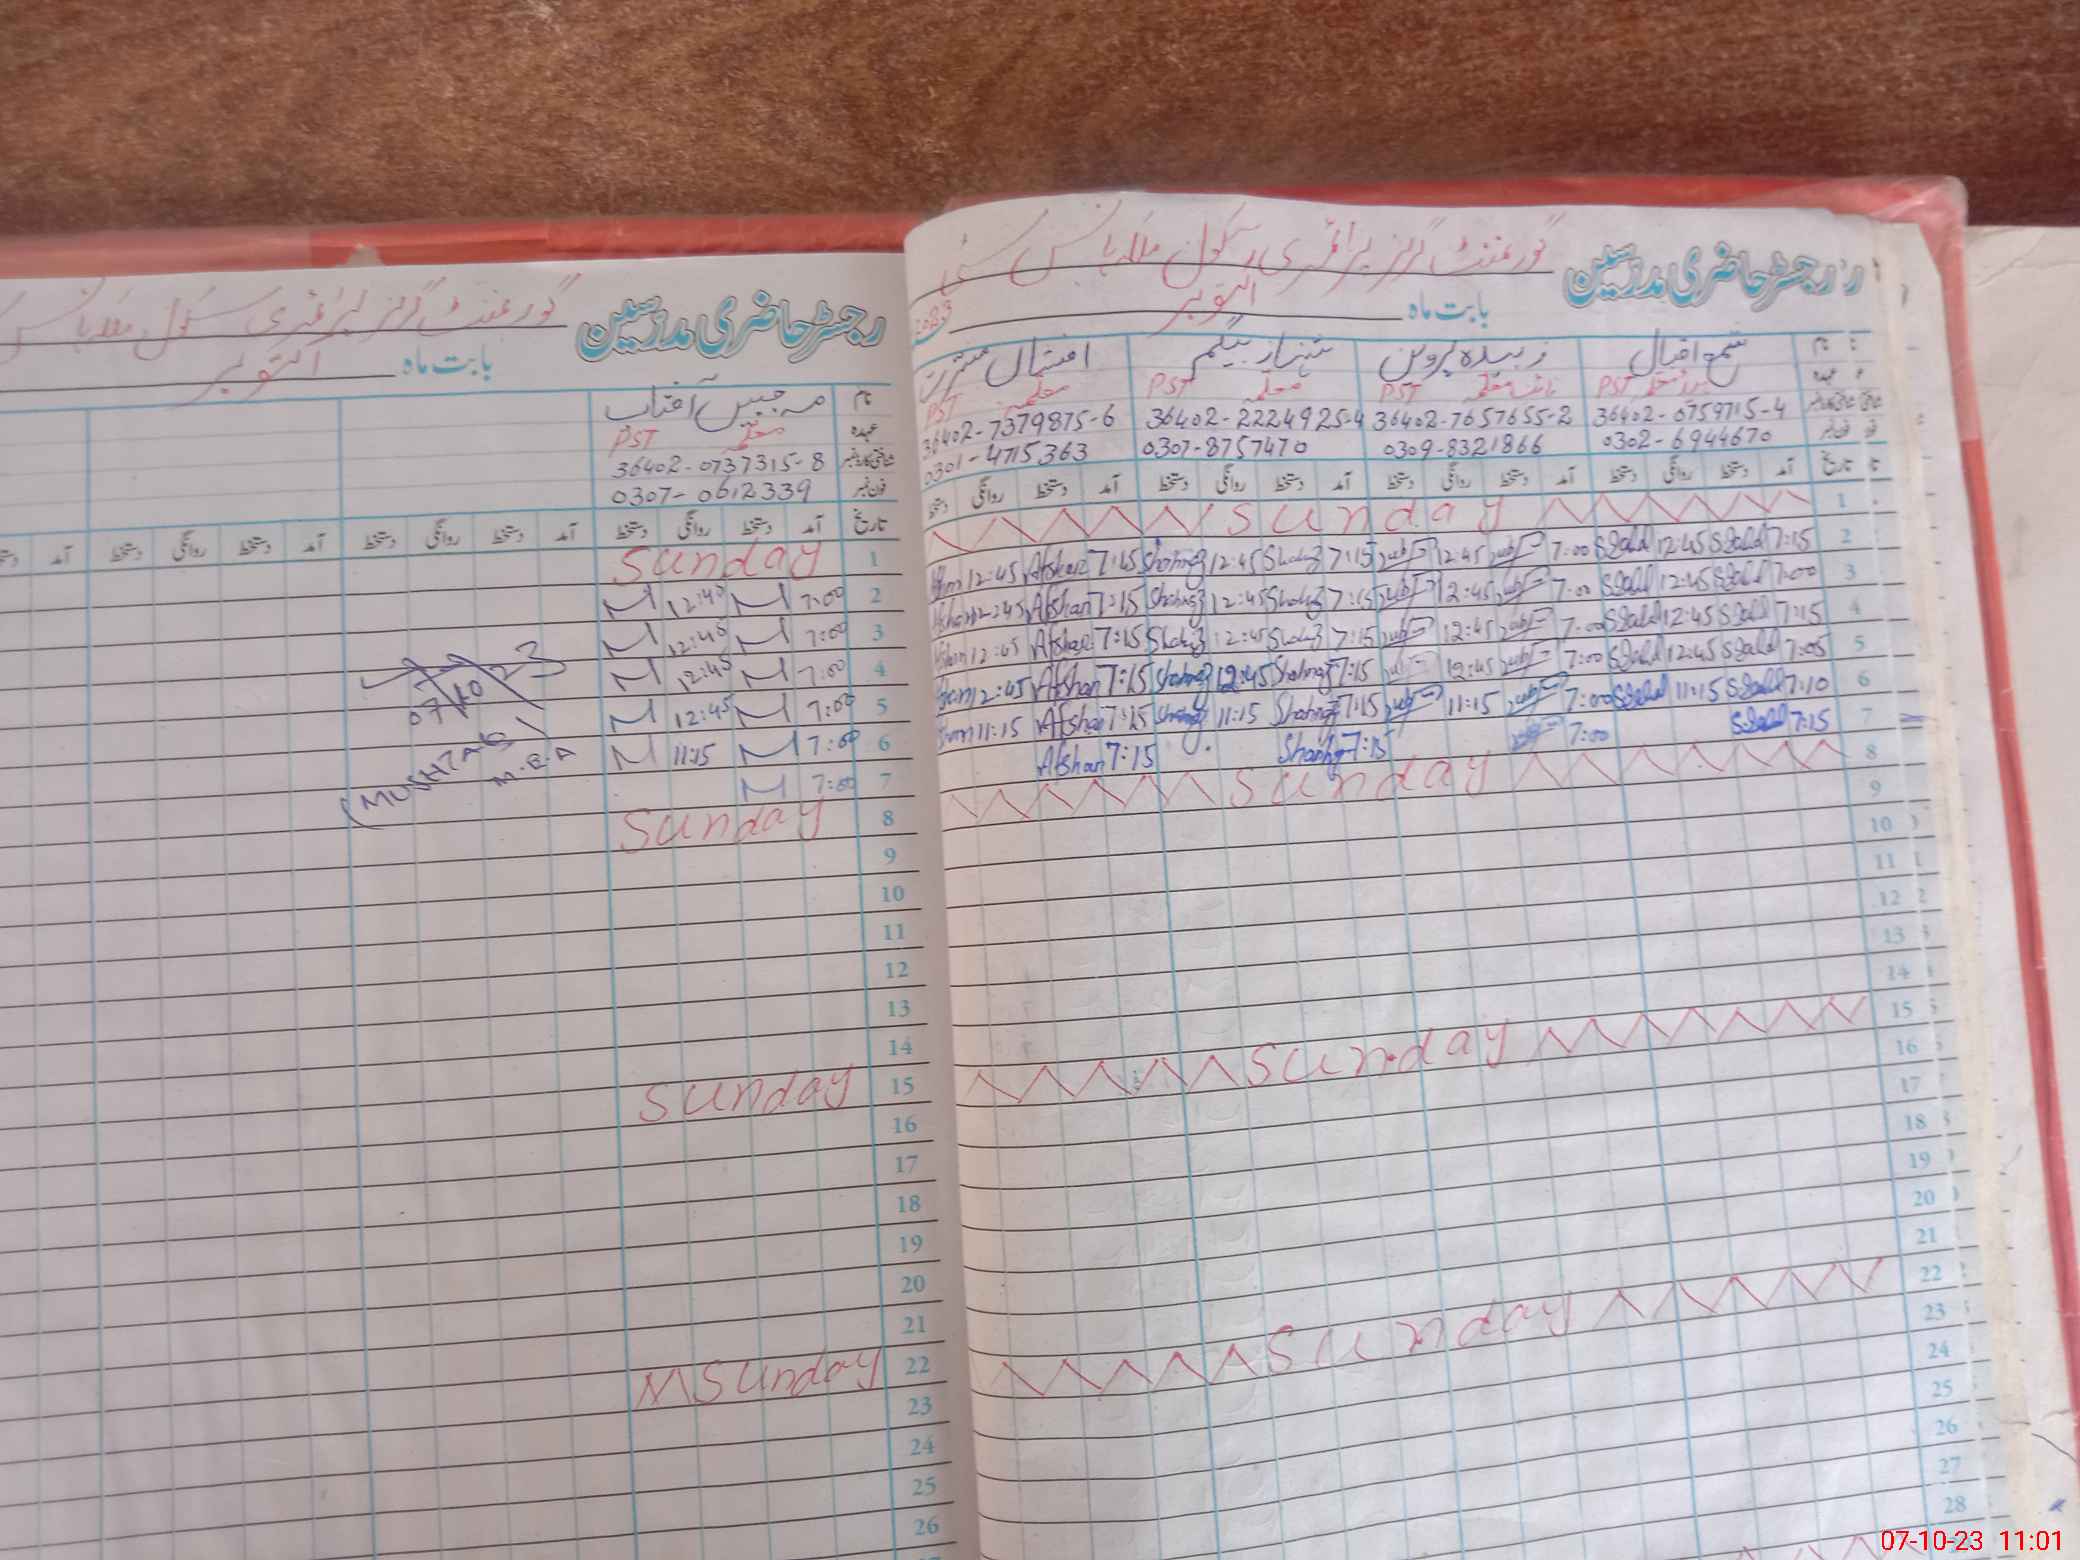 رجسٹر حاضری مدرسین
گورنمنٹ گرلز پرائمری سکول
بابت ماہ اکتوبر
نام
مہ جبیں آفتاب
عہدہ
معلمہ PST
36402-0737315-8
فون نمبر
0307-0612339
تاریخ آمد دستخط روانگی دستخط آمد دستخط روانگی دستخط آمد دستخط روانگی دستخط آمد
1 Sunday
2 7:00 M 12:45 M
3 7:00 M 12:45 M
4 7:00 M 12:45 M
5 7:00 M 12:45 M
6 7:00 M 11:15 M
7 7:00 M
07/10 23
(MUSHTAQ)
M.E.A
8 Sunday
9
10
11
12
13
14
15 Sunday
16
17
18
19
20
21
22 Sunday
23
24
25
26
رجسٹر حاضری مدرسین
گورنمنٹ گرلز پرائمری سکول
بابت ماہ اکتوبر 2023
شمع اقبال زبیدہ پروین شہناز بیگم
PST PST معلمہ PST معلمہ PST
36402-0759715-4 36402-7657655-2 36402-2224925-4 36402-7379875-6
0302-6944670 0309-8321866 0307-8757470 0301-4715363
تاریخ آمد دستخط روانگی دستخط آمد دستخط روانگی دستخط آمد دستخط روانگی دستخط آمد دستخط روانگی
1 Sunday
2 7:15 12:45 7:00 12:45 7:15 12:45 7:15 Afshan 12:45
3 7:00 12:45 7:00 12:45 7:15 12:45 7:15 Afshan 12:45
4 7:15 12:45 7:00 12:45 7:15 12:45 7:15 Afshan 12:45
5 7:05 12:45 7:00 12:45 7:15 12:45 7:15 Afshan 12:45
6 7:10 11:15 7:00 11:15 7:15 11:15 7:15 Afshan 11:15
7 7:15 7:00 7:15 7:15 Afshan
8 Sunday
9
10
11
12
13
14
15 Sunday
16
17
18
19
20
21
22 Sunday
23
24
25
26
27
28
07-10-23 11:01